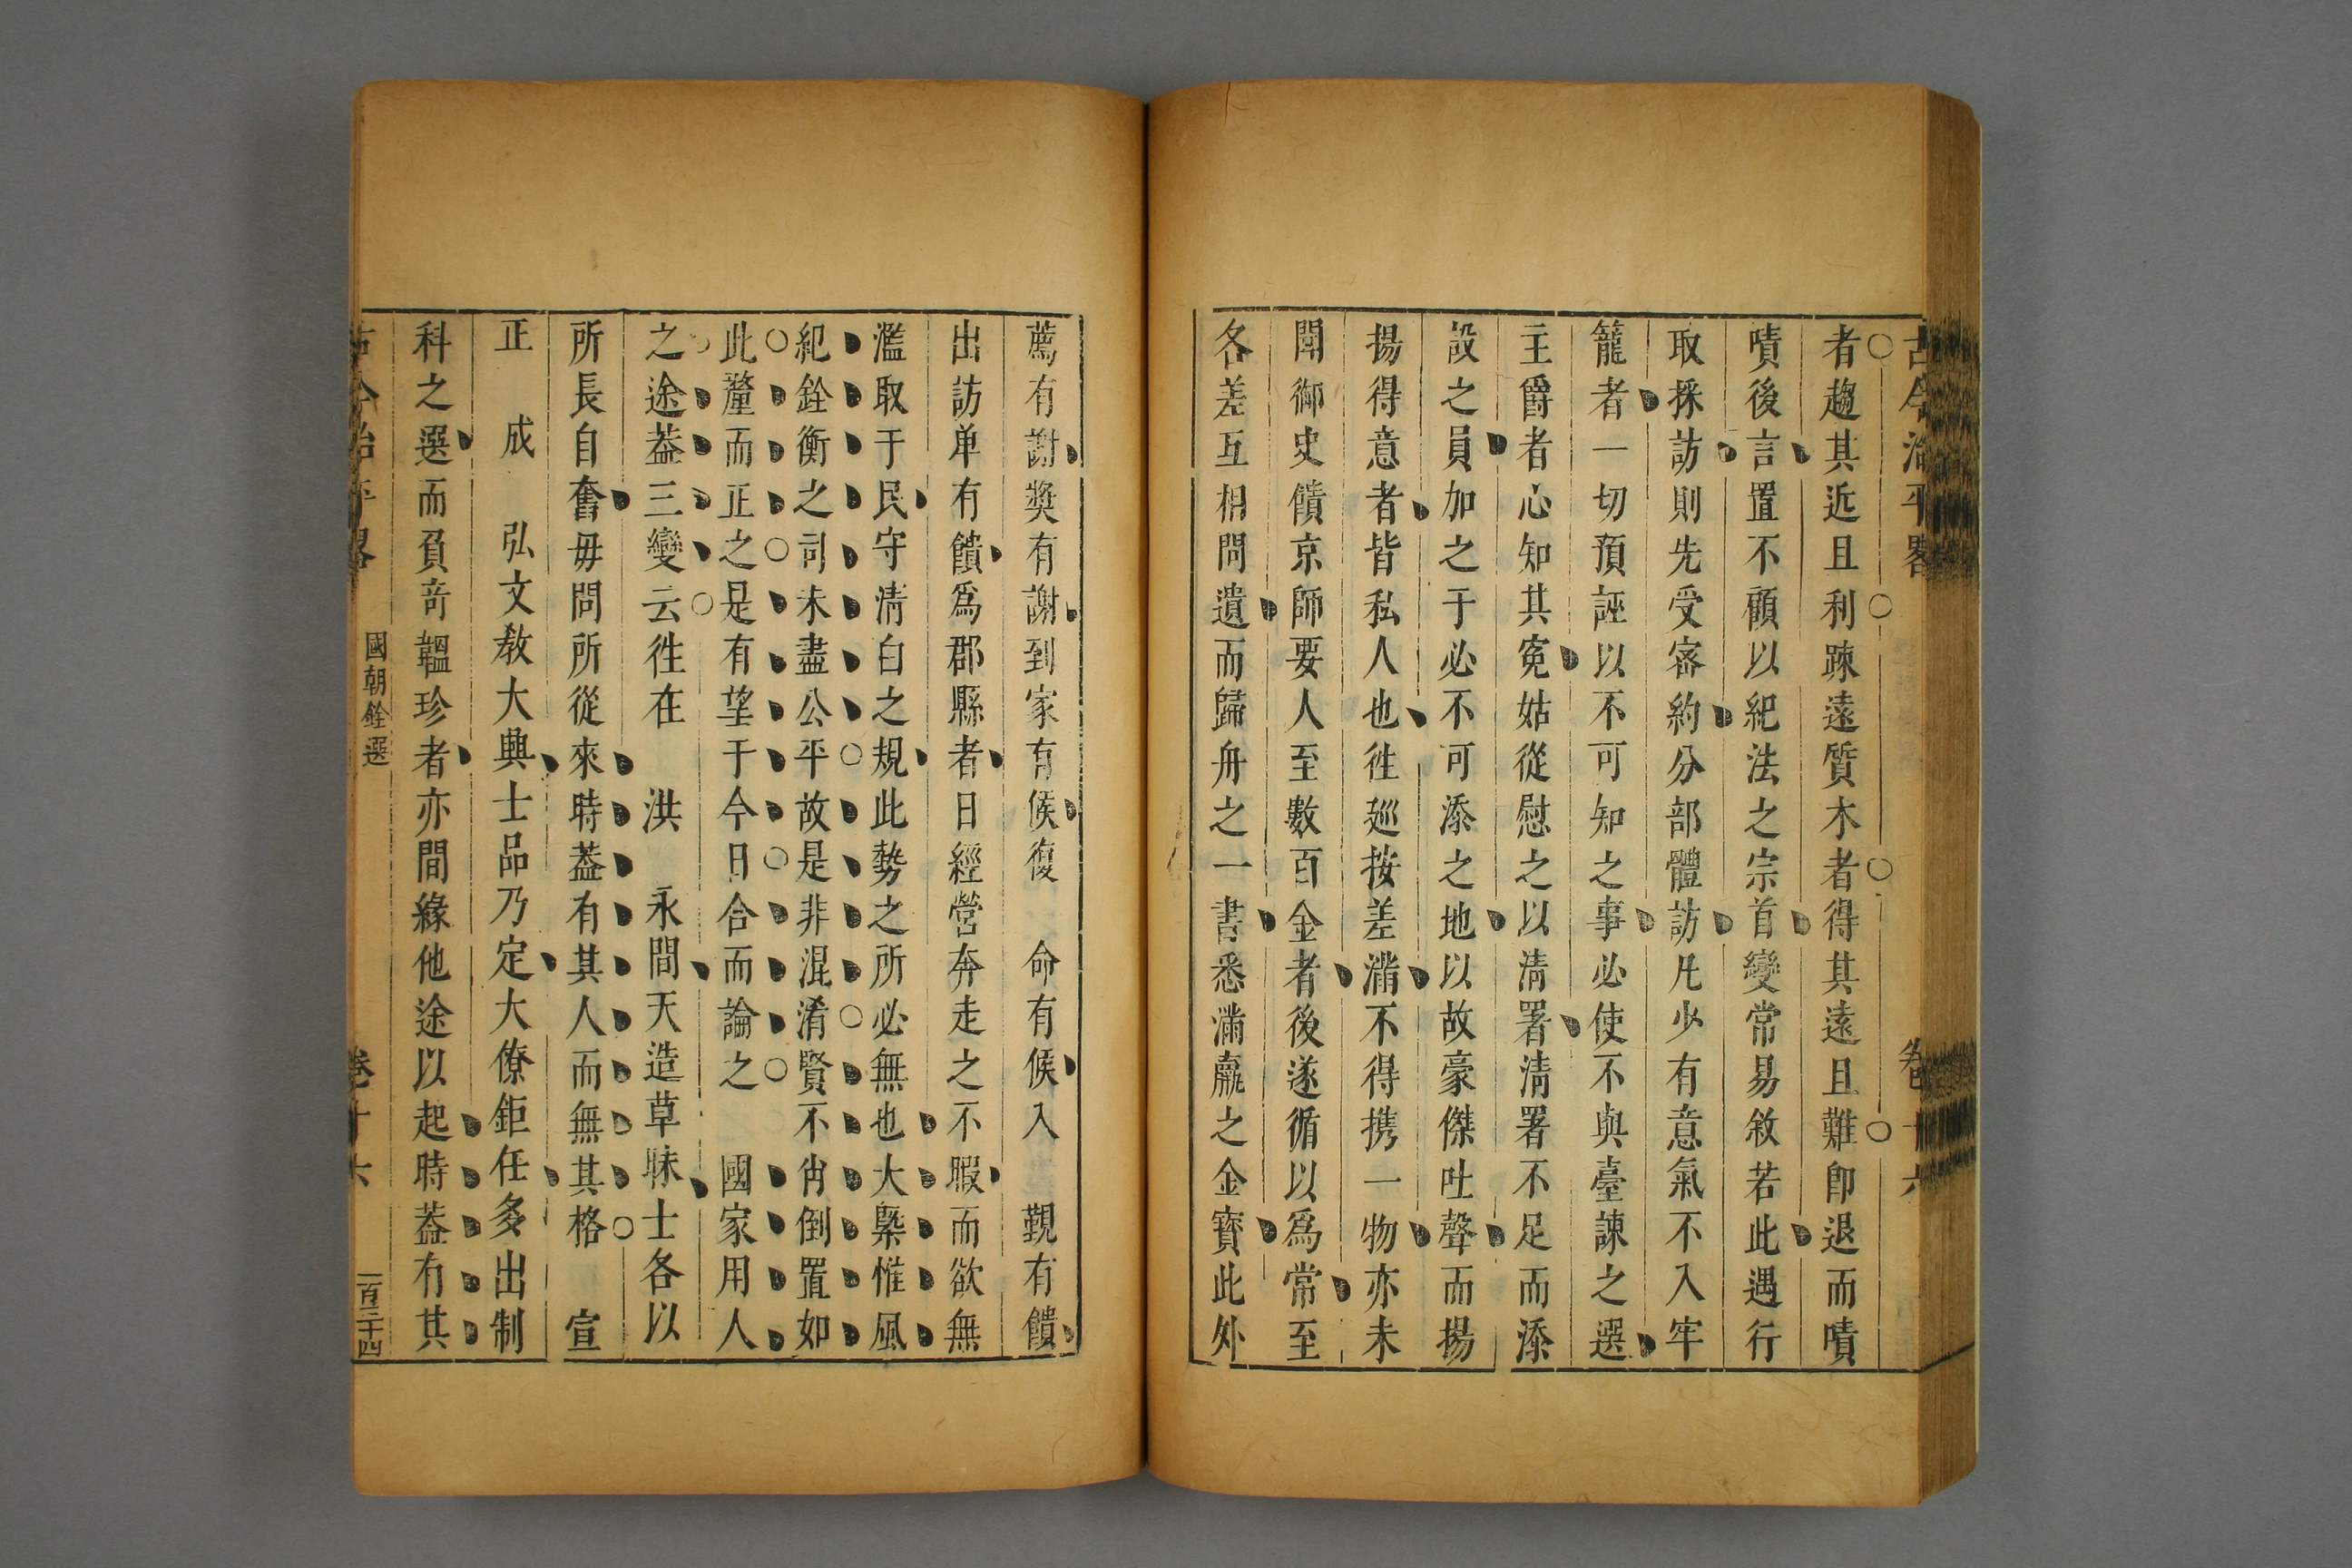 古今治平畧 卷十六
者趨其近且利踈遠質木者得其遠且難卽退而嘖
嘖後言置不顧以紀法之宗首變常易敘若此遇行
取採訪則先受宻約分部體訪凡少有意氣不入牢
籠者一切預誣以不可知之事必使不與臺諫之選
主爵者心知其寃姑從慰之以清署清署不足而添
設之員加之于必不可添之地以故豪傑吐聲而揚
揚得意者皆私人也徃廵按差滿不得携一物亦未
聞御史饋京師要人至數百金者後遂循以爲常至
各差互相問遺而歸舟之一書悉滿贏之金寳此外
薦有謝奬有謝到家有候復 命有候入 覲有饋
出訪单有饋爲郡縣者日經營奔走之不暇而欲無
濫取于民守清白之規此勢之所必無也大槩惟風
紀銓衡之司未盡公平故是非混淆賢不肖倒置如
此釐而正之是有望于今日合而論之 國家用人
之途葢三變云徃在 洪 永間天造草昧士各以
所長自奮毋問所從來時葢有其人而無其格 宣
正 成 弘文教大典士品乃定大僚鉅任多出制
科之選而負竒韞珍者亦間緣他途以起時葢有其
古今治平畧 國朝銓選 卷十六 一百三十四